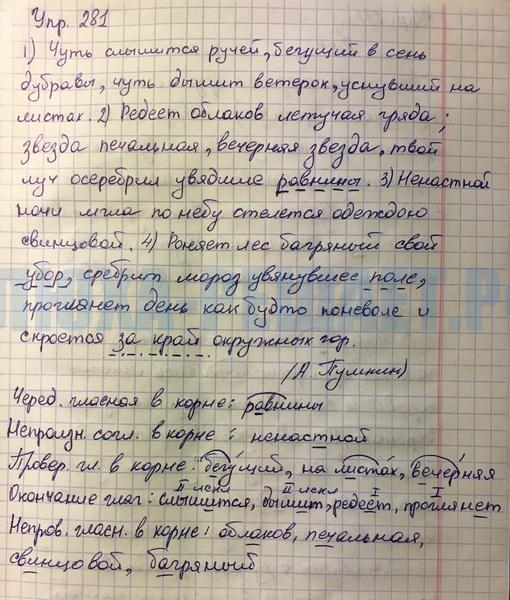 Упр. 281
1) Чуть слышится ручей, бегущий в сень
дубравы, чуть дышит ветерок, уснувший на
листах. 2) Редеет облаков летучая гряда;
звезда печальная, вечерняя звезда, твой
луч осеребрил увядшие равнины. 3) Ненастной
ночи мгла по небу стелется одеждою
свинцовой. 4) Роняет лес багряный свой
убор, сребрит мороз увянувшее поле,
проглянет день как будто поневоле и
скроется за край окружных гор.
(А. Пушкин)
Черед. гласная в корне: равнины
Непроизн. согл. в корне: ненастной
Провер. гл. в корне: бегущий, на листах, вечерняя
II искл II искл I I
Окончание глаг: слышится, дышит, редеет, проглянет
Непров. гласн. в корне: облаков, печальная,
свинцовой, багряный